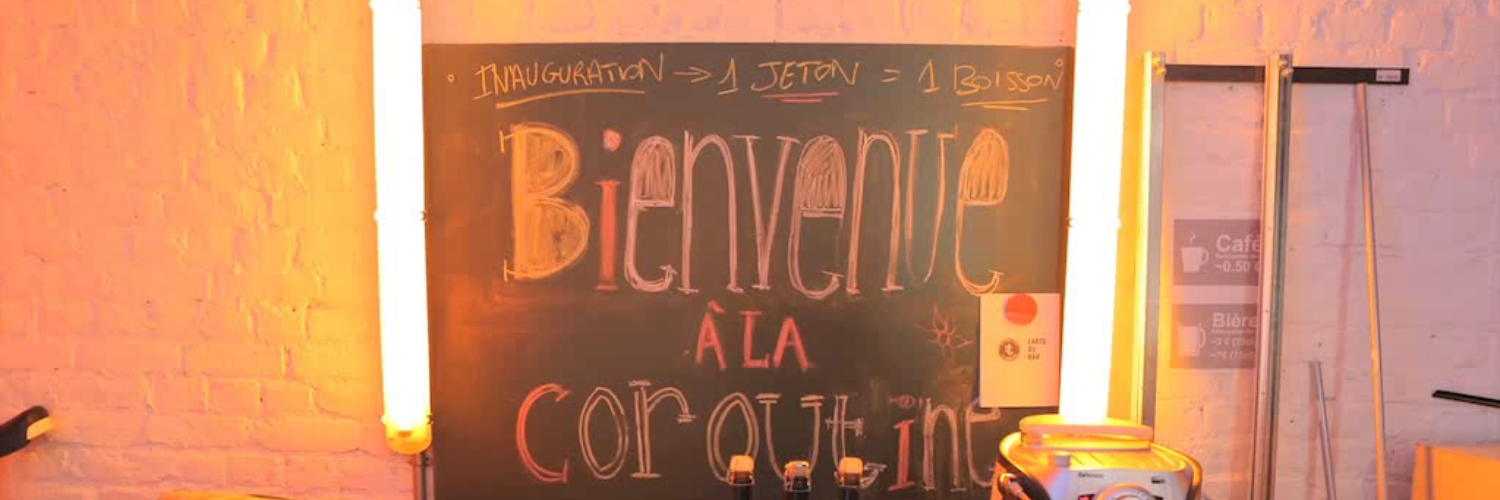 INAUGURATION → 1 JETON = 1 BOISSON
Bienvenue
À LA
Coroutine
CARTE
DU
BAR
Café
~0.50 €
Bière